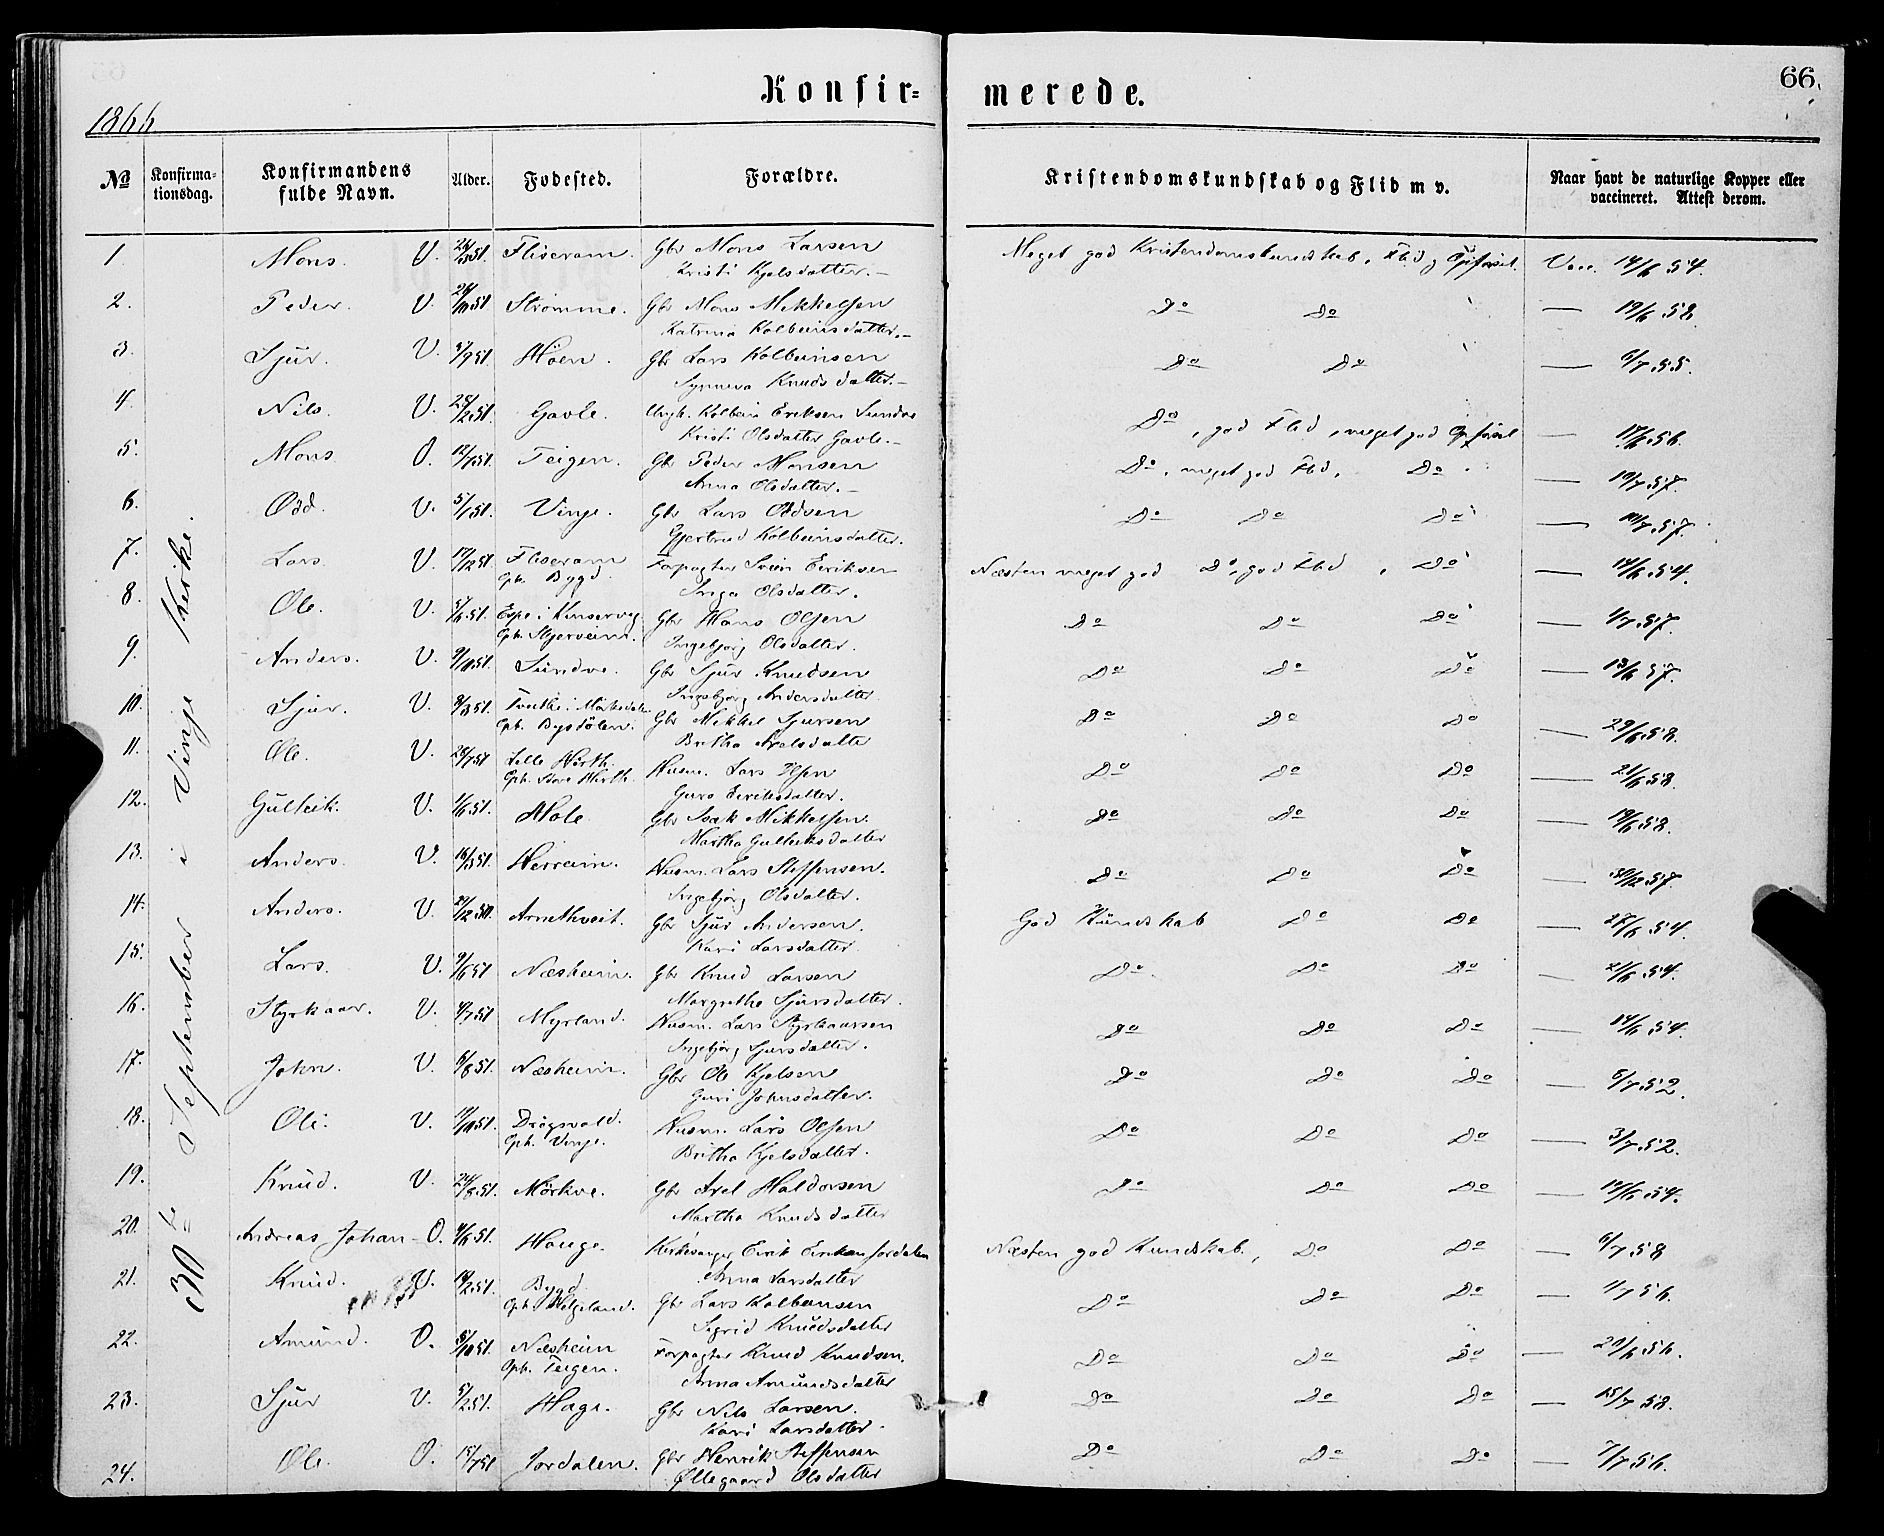 Konfir= merede. 66.
1866
No Konfirma-tionsdag. Konfirmandens fulde Navn. Alder. Fodested. Forældre. Kristendomskundskab og Flid m v. Naar havt de naturlige Kopper eller vaccineret. Attest derom.
30te September i Vinje Kirke.
1. Mons. V. Fliseram. Gbr Mons Larsen Meget god Kristendomskundskab, Flid g Opførsel. Vacc. 14/6 54.
Kristi Kjelsdatter.—
2. Peder. V. 51. Strømme. Gbr Mons Mikkelsen Do Do — 19/6 58.
Katrina Kolbeinsdatter.—
3. Sjur. V. 5/9 51. Höen. Gbr Lars Kolbeinsen Do Do — 6/7 55.
Synneva Knudsdatter.—
4. Nils. V. 28/2 51. Gavle. Ungk. Kolbein Eriksen Sundve Do, god Flid, meget god Opførsel — 17/6 56.
Kristi Olsdatter Gavle.—
5. Mons. O. 12/7 51. Teigen. Gbr Peder Monsen Do, meget god Flid, Do — 10/7 57.
Anna Olsdatter.—
6. Odd. V. 5/1 51. Vinje. Gbr Lars Oddsen Do Do Do — 10/7 57.
Gjertrud Kolbeinsdatter.
7. Lars. V. 17/12 51 Fliseram Forpagter Svein Eeriksen Næsten meget god Do, god Flid, Do — 14/6 54.
Oph. Bygd. Inga Olsdatter.
8. Ole. V. 5/6 51. Espe i Kinservig Gbr Hans Olsen Do Do Do — 1/7 57.
Oph. Skjerveim. Ingebjørg Olsdatter.
9. Anders. V. 9/10 51. Sundve. Gbr Sjur Knudsen Do Do Do — 13/6 57.
Ingebjørg Andersdatter
10. Sjur. V. 9/3 51. Tveite i Gbr Mikkel Sjursen Do Do Do — 29/6 58.
Oph. Bystölen. Britha Axelsdatter
11. Ole. V. 28/7 51 Lille Hirth. Husm. Lars Olsen Do Do Do — 21/6 58.
Oph. Store Hirth. Guro Eeriksdatter.
12. Gulleik. V. 1/6 51. Mole Gbr Isak Mikkelsen. Do Do Do — 19/6 58.
Martha Gulleiksdatter
13. Anders. V. 16/3 51. Herreim. Husm. Lars Steffensen. Do Do Do — 30/12 57
Ingebjørg Olsdatter.
14. Anders. V. 29/12 50. Arnethveit. Gbr Sjur Andersen. God Kundskab Do Do — 27/6 54.
Kari Larsdatter.
15. Lars. V. 9/6 51 Næsheim. Gbr Knud Larsen Do. Do Do — 21/6 54.
Margrethe Sjursdatter.
16. Styrkaar. V. 4/7 51 Myrland. Husm. Lars Styrkaarsen Do Do Do — 14/6 54.
Ingebjørg Sjursdatter.
17. John. V. 6/8 51. Næsheim. Gbr Ole Kjelsen Do Do Do — 5/7 52.
Guri Johnsdatter.
18. Ole. V. 51. Drøgsvold. Husm. Lars Olsen Do Do Do — 3/7 52.
Oph. Vinje. Britha Kjelsdatter.
19. Knud. V. 24/8 51. Mörkve. Gbr Axel Haldorsen Do Do Do — 14/6 54.
Martha Knudsdatter
20. Andreas Johan — O. 4/6 51. Hauge. Kirkesanger Eirik Eriksen Jordalen Næsten god Kundskab, Do Do — 6/7 58
Anna Larsdatter
21. Knud. V. 18/2 51. Bygd Gbr Lars Kolbeinsen Do Do Do — 1/7 56.
Oph. Helgeland. Sigrid Knudsdatter
22. Amund. O. 8/10 51. Næsheim Forpagter Knud Knudsen. Do Do Do — 21/6 56.
Oph. Teigen. Anna Amundsdatter
23. Sjur V. 5/2 51. Hage. Gbr Nils Larsen. Do Do Do — 15/7 58.
Kari Larsdatter
24. Ole. O. 15/7 51 Jordalen. Gbr Henrik Steffensen Do Do Do — 7/7 56.
Øllegaard Olsdatter